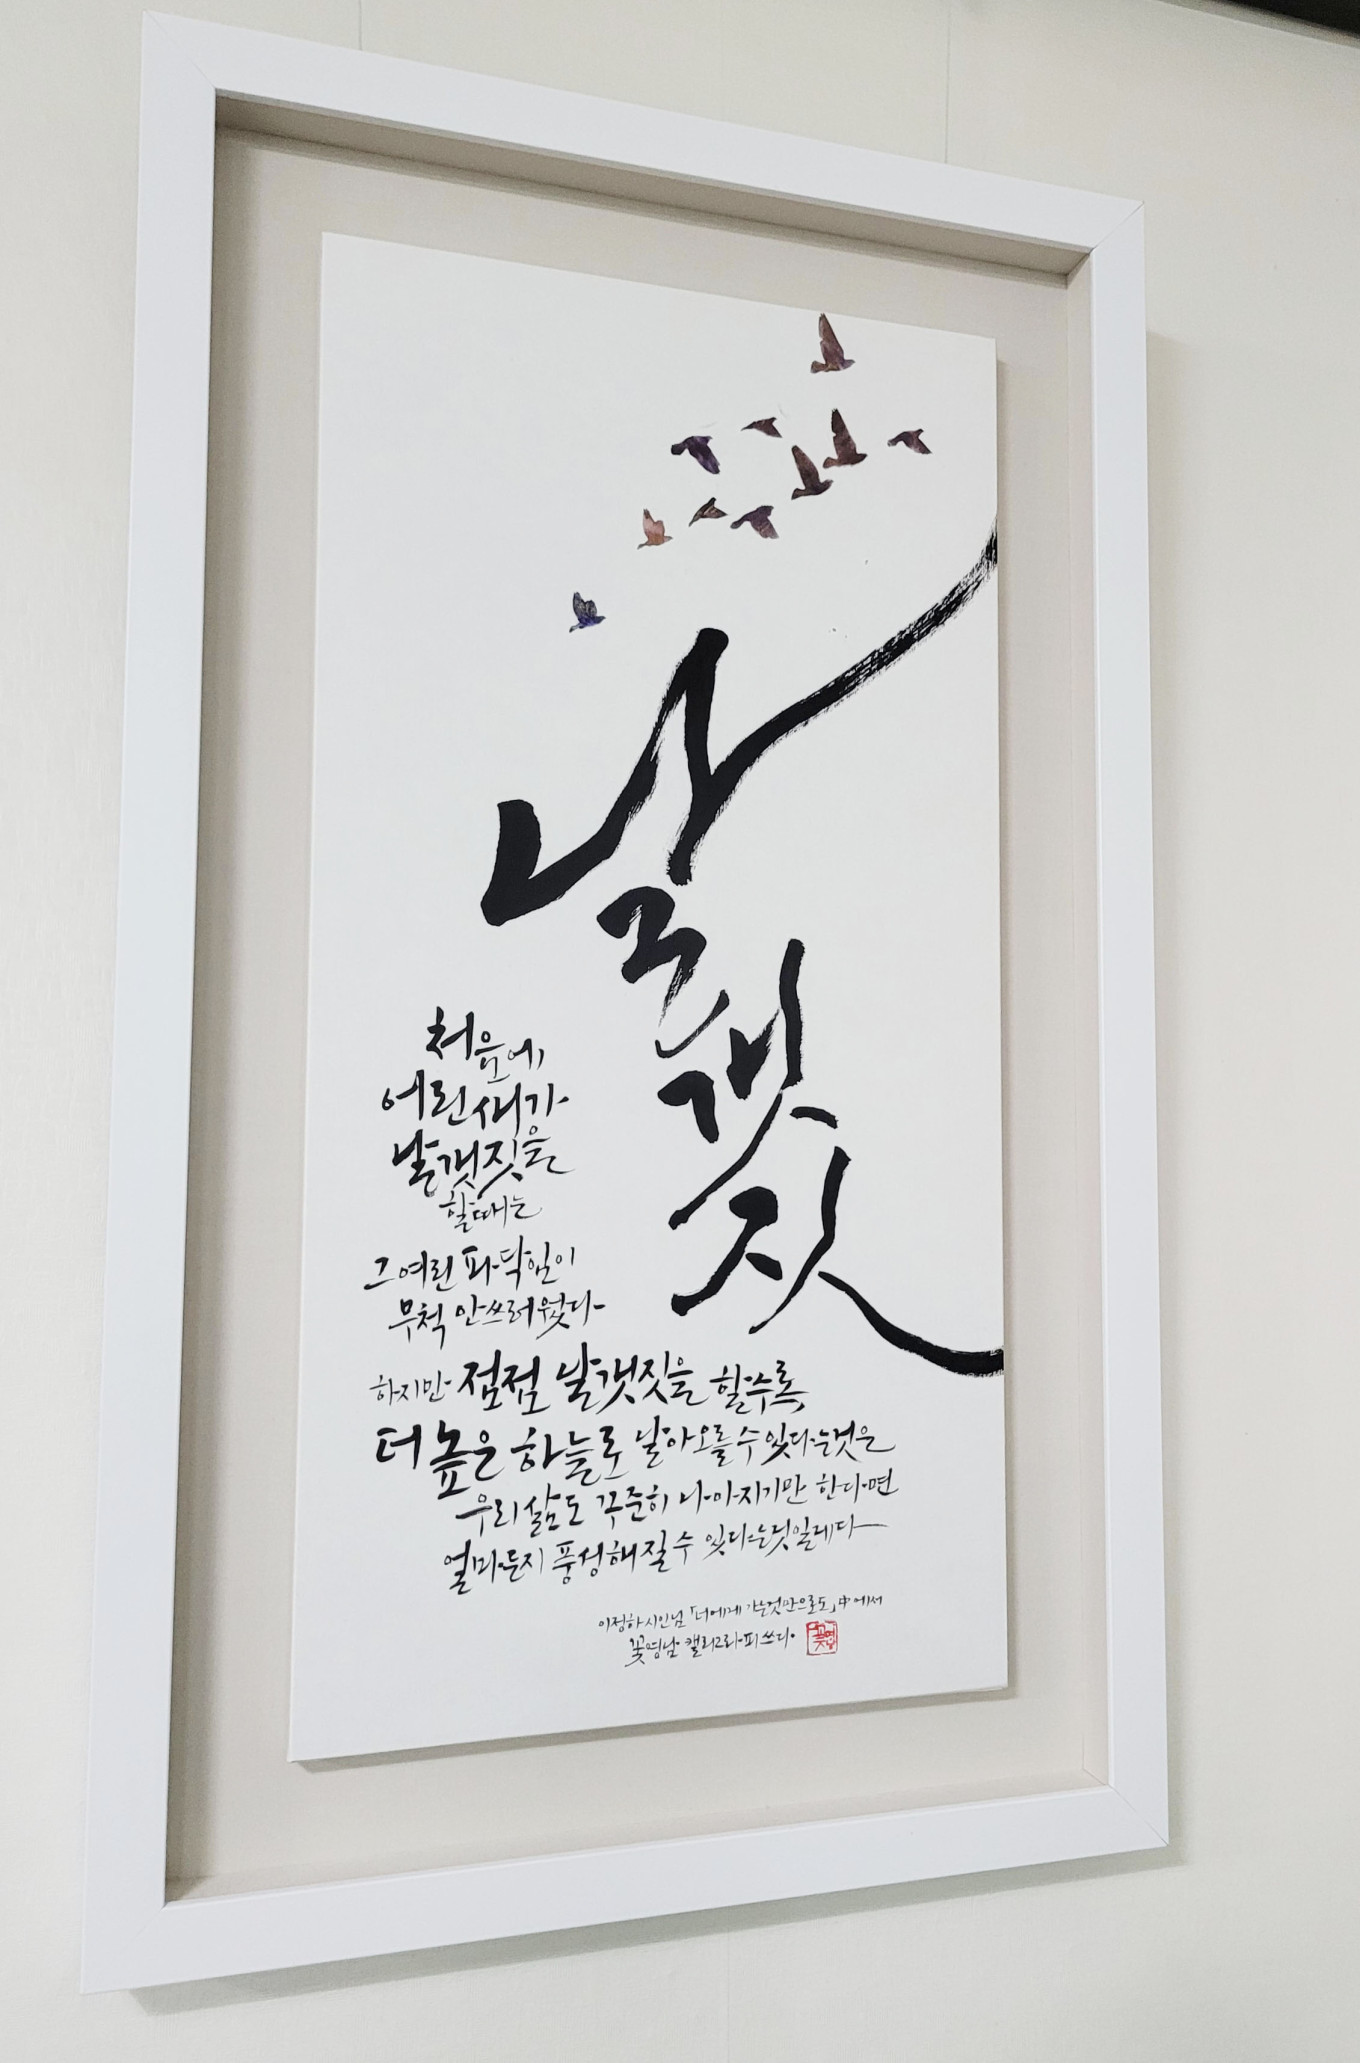 날갯짓
처음에
어린새가
날갯짓을
할때는
그여린 파닥임이
무척 안쓰러웠다
하지만 점점 날갯짓을 할수록
더 높은 하늘로 날아오를수있다는것은
우리삶도 꾸준히 나아지기만 한다면
얼마든지 풍성해질수 있다는것일레다
이정하시인님 「너에게 가는것만으로도」中에서
꽃영남 캘리그라피쓰다